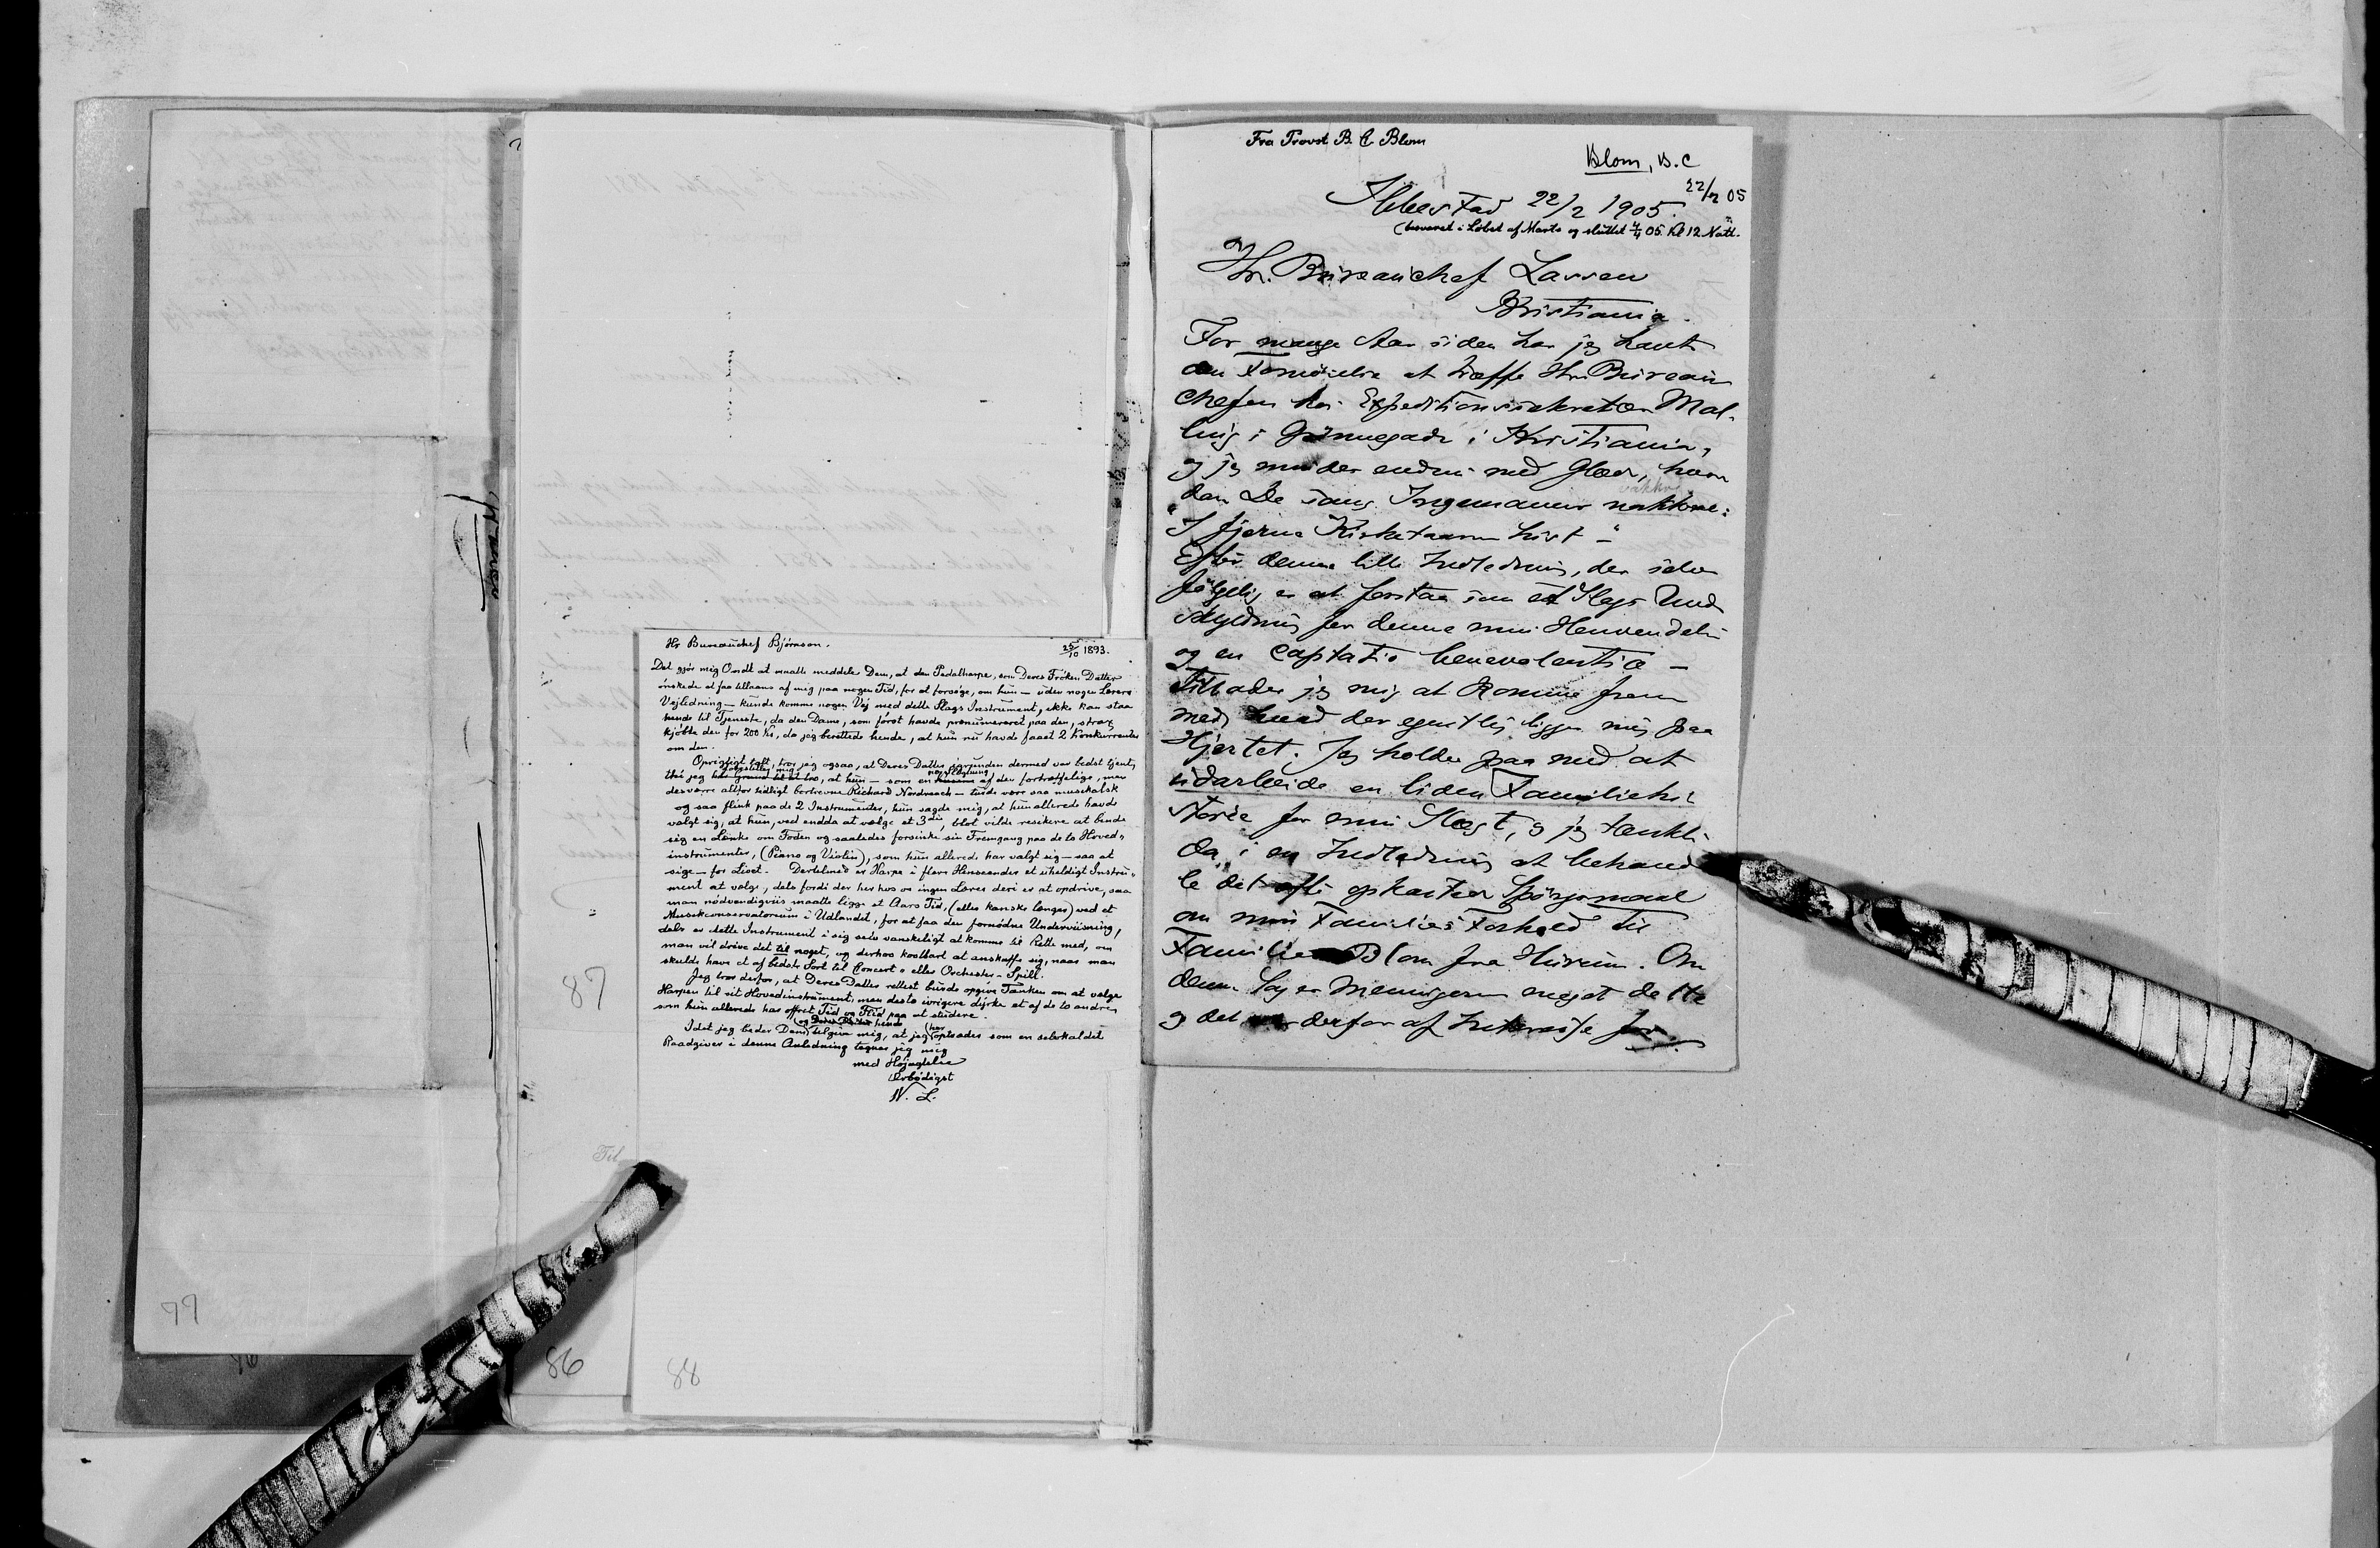 Hr Bureauchef Bjørnson.
25/10 1893.
Det gjør mig Ondt at maatte meddele Dem, at den Pedalharpe, som Deres Frøken Datter
ønskede at faa tillaans af mig paa nogen Tid, for at forsøge, om hun – uden nogen Lærers
Vejledning – kunde komme nogen Vej med dette Slags Instrument, ikke kan staa
hende til Tjeneste, da den Dame, som først havde prænumereret paa den, strax
kjøbte den for 200 Kr, da jeg berettede hende, at hun nu havde faaet 2 Konkurrenter
om den.
Oprigtigt talt, tror jeg ogsaa, at Deres Datter igrunden dermed var bedst tjent,
thi jeg har Grund til at tro, at hun – som en af den fortræffelige, men
desværre altfor tidligt bortrevne Richard Nordraach – turde være saa musikalsk
og saa flink paa de 2 Instrumenter, hun sagde mig, at hun allerede havde
valgt sig, at hun, ved endda at vælge et 3die, blot vilde resikere at binde
sig en Lænke om Foden og saaledes forsinke sin Fremgang paa de to Hoved-
instrumenter, (Piano og Violin), som hun allerede har valgt sig – saa at
sige – for Livet. Dertilmed er Harpe i flere Henseender et uheldigt Instru-
ment at vælge, dels fordi der her hos os ingen Lærer deri er at opdrive, saa
man nødvendigviis maatte ligge et Aars Tid, (eller kanske længer) ved et
Musikconservatorium i Udlandet, for at faa den fornødne Underviisning,
dels er dette Instrument i sig selv vanskeligt at komme til Rette med, om
man vil drive det til noget, og derhos kostbart at anskaffe sig, naar man
skulde have et af bedste Sort til Concert- eller Orchester-Spill.
Jeg tror derfor, at Deres Datter rettest burde opgive Tanken om at vælge
Harpen til sit Hovedinstrument, men desto ivrigere dyrke et af de to andre,
som hun allerede har offret Tid og Flid paa at studere.
Idet jeg beder Dem tilgive mig, at jeg har optraadt som en selvkaldet
Raadgiver i denne Anledning tegner jeg mig
med Højagtelse
Ærbødigst
W. L.
87
Til
77
86
88
Fra Provst B. C. Blom
Blom, B. C
22/2 05
Ibbestad 22/2 1905.
(besvaret i Løbet af Marts og sluttet 4/4 05. Kl 12 Natt.
Hr. Bureauchef Lassen
Kristiania.
For mange Aar siden har jeg havt
den Fornøielse at træffe Hr. Bureau
chefen hos Expeditionssekretær Mal-
ling i Grønnegade i Kristiania,
og jeg minder endnu med Glæde, hvor
dan De sang Ingemanns vakkre:
"I fjerne Kirketaarne hist –"
Efter denne lille Indledning, der selv
følgelig er at forstaa som et Slags Und
skyldning for denne min Henvendelse
og en captatio benevolentiæ –
tillader jeg mig at komme frem
med hvad der egentlig ligger mig paa
Hjertet: Jeg holder paa med at
udarbeide en liden Familiehi
storie for min Slægt, og jeg tænkte
da i en Indledning at behand
le det ofte opkastede Spørgsmaal
om min Families Forhold til
Familien Blom fra Hurum. Om
denne Sag er Meningerne meget delte
og det er derfor af Interesse for